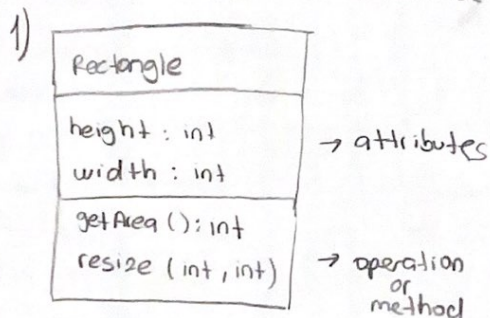 1)
Rectangle
height : int
width : int
→ attributes
getArea () : int
resize (int, int)
→ operation
or
method